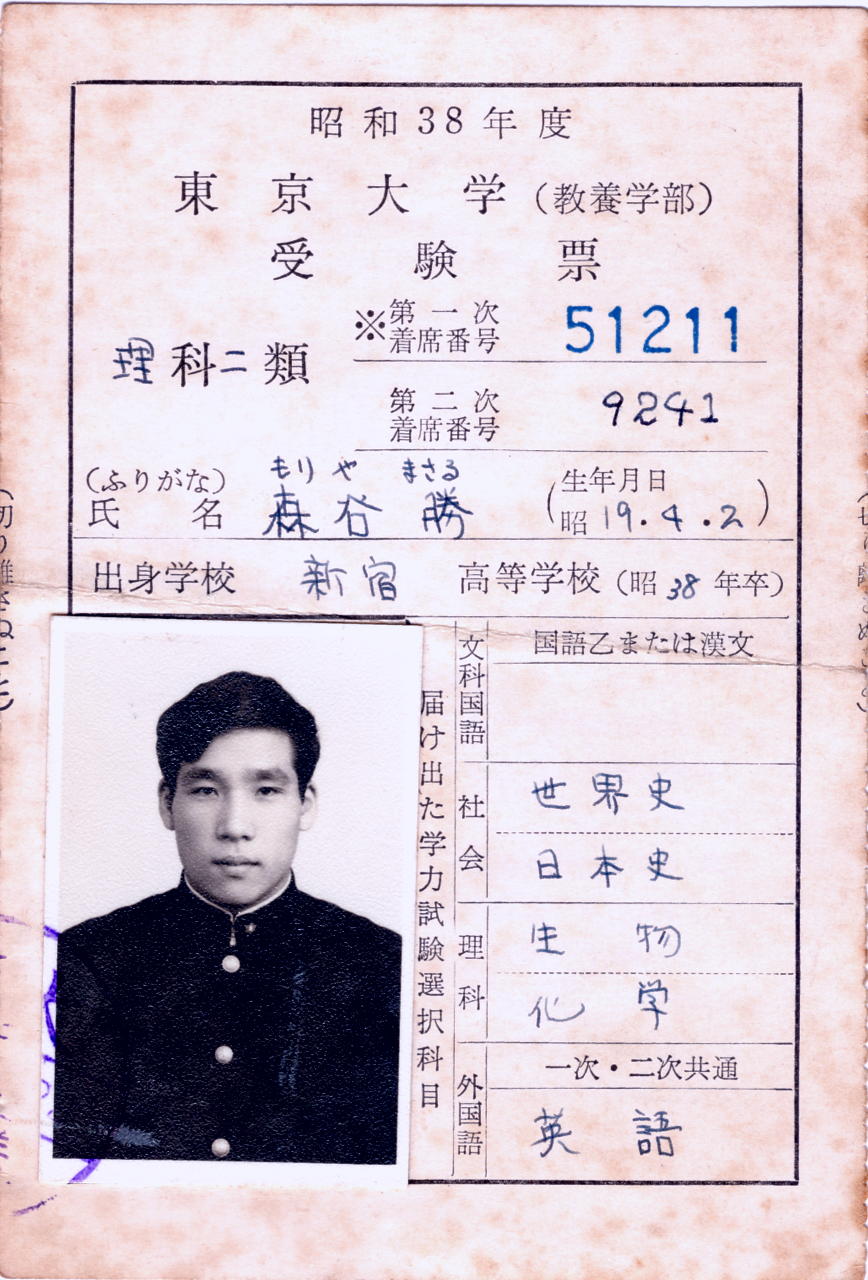 昭和38年度
東京大学(教養学部)
受験票
理科二類
※第一次着席番号 51211
第二次着席番号 9241
(ふりがな) もりや まさる
氏名 森谷 勝
(生年月日 昭19.4.2)
出身学校 新宿 高等学校 (昭38年卒)
届け出た学力試験選択科目
文科国語 国語乙または漢文
社会 世界史
日本史
理科 生物
化学
外国語 一次・二次共通
英語